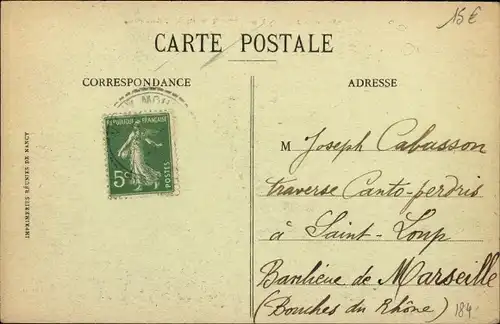 15€
CARTE POSTALE
CORRESPONDANCE
ADRESSE
REPUBLIQUE FRANÇAISE
5c
POSTES
M Joseph Cabasson
traverse Canto-perdris
à Saint-Loup
Banlieue de Marseille
(Bouches du Rhône)
184
IMPRIMERIES RÉUNIES DE NANCY